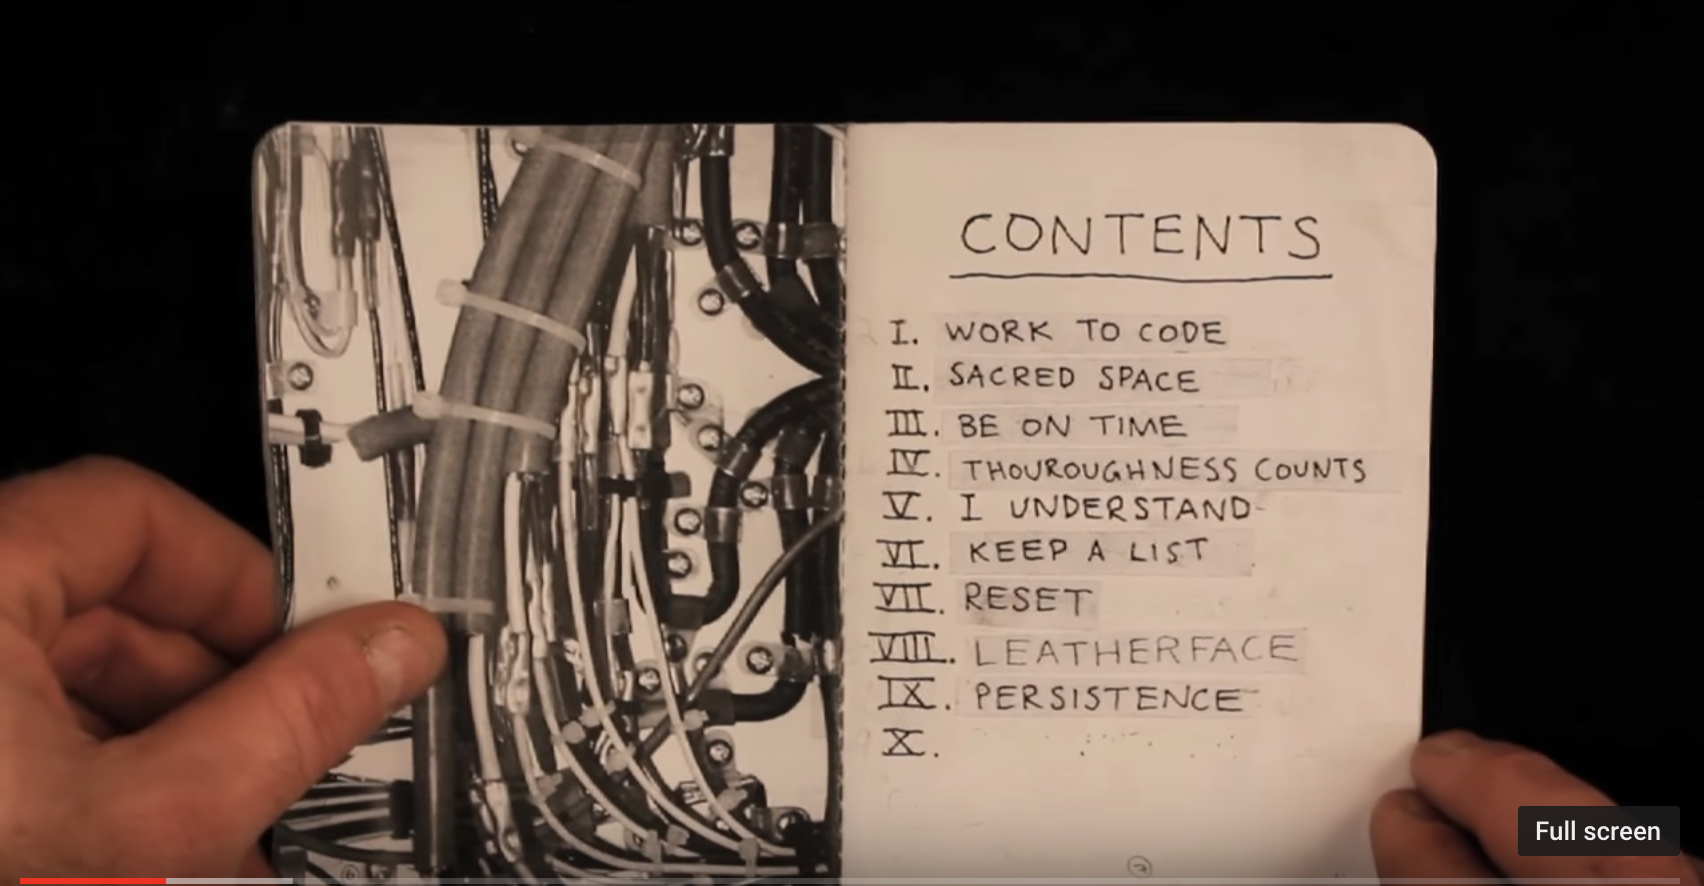 CONTENTS
I. WORK TO CODE
II. SACRED SPACE
III. BE ON TIME
IV. THOUROUGHNESS COUNTS
V. I UNDERSTAND
VI. KEEP A LIST
VII. RESET
VIII. LEATHERFACE
IX. PERSISTENCE
X.
Full screen